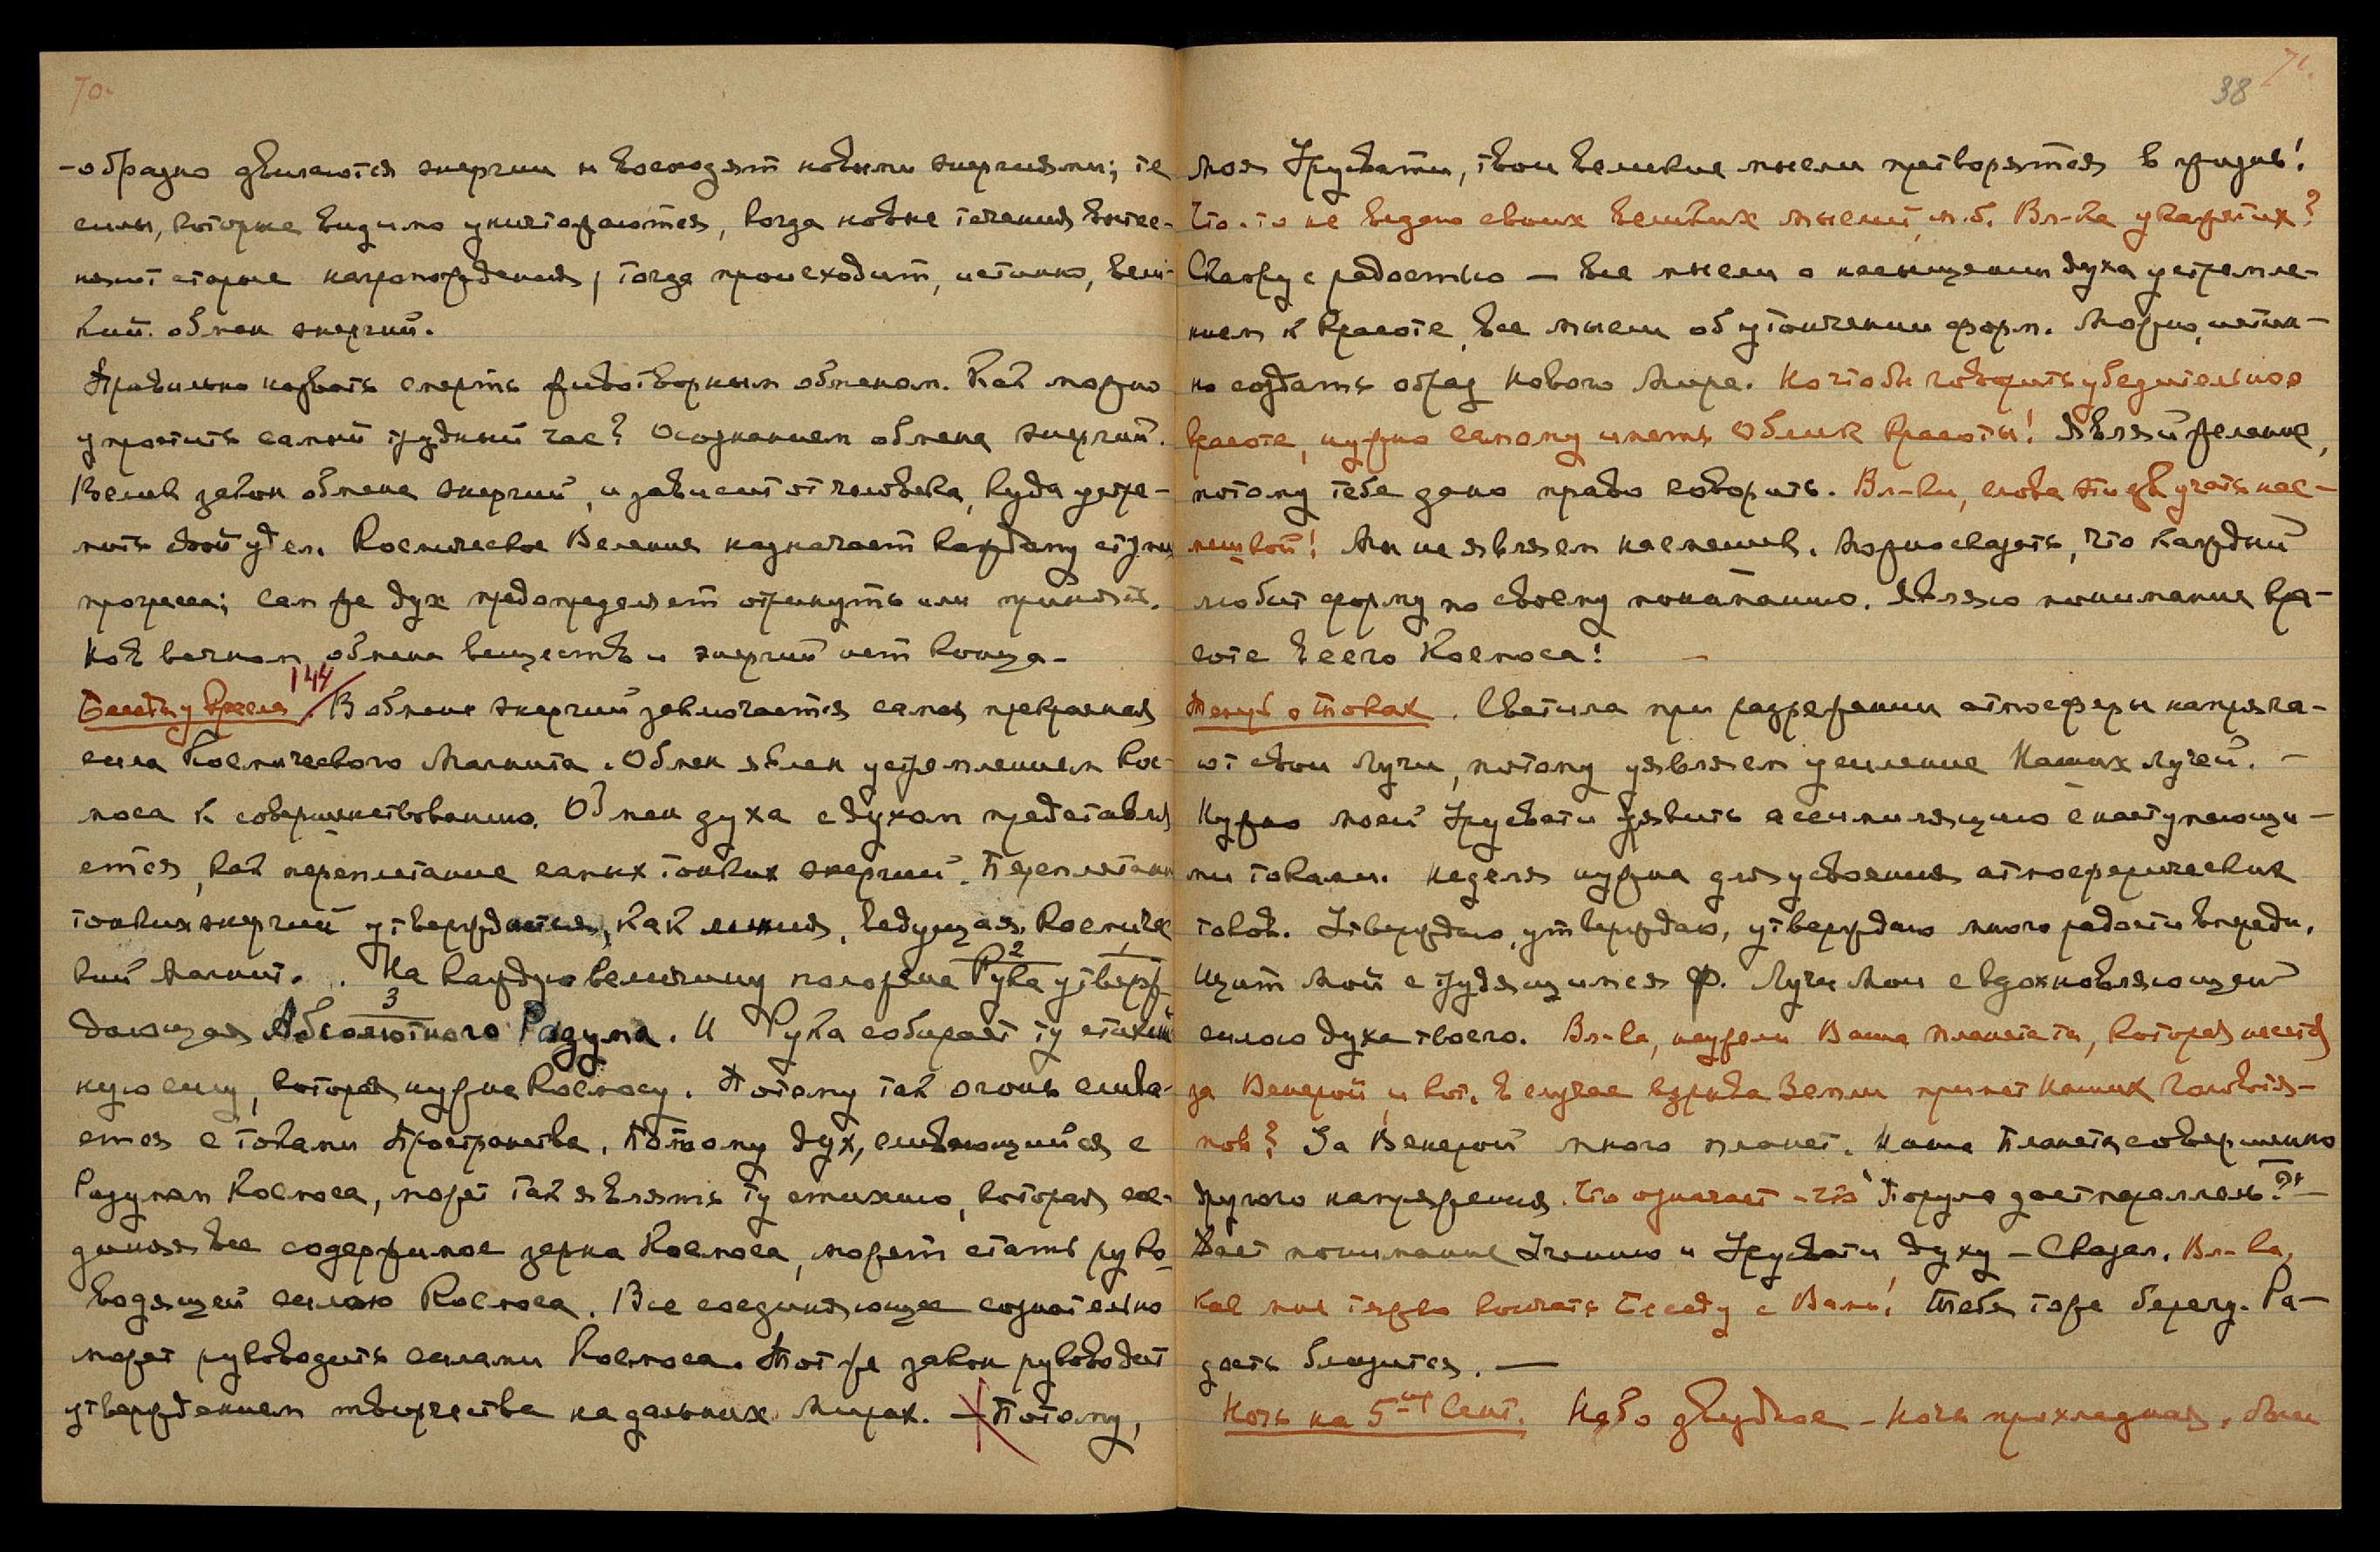 70.
-образно движутся энергии и восходят новыми энергиями; те
силы, которые видимо уничтожаются, когда новые течения вытес-
няют старые нагромождения, тогда происходит, истинно, вели-
кий обмен энергий.
Правильно назвать смерть животворным обменом. Как можно
упростить самый трудный час? Осознанием обмена энергий.
Велик закон обмена энергий, и зависит от человека, куда устре-
мить свой удел. Космическое Веление назначает каждому ступни
прогресса; сам же дух предопределяет отринуть или принять.
Но в вечном обмене веществ и энергий нет конца.
144
Беседа у кресла. В обмене энергий заключается самая прекрасная
сила Космического Магнита. Обмен явлен устремлением Кос-
моса к совершенствованию. Обмен духа с духом представля
ется, как переплетание самых тонких энергий. Переплетание
тонких энергий утверждается, как линия, ведущая Космичес
2 1
кий Магнит. На каждую величину положена Рука утверж
3
дающая Абсолютного Разума. И Рука собирает ту стихий
ную силу, которая нужна Космосу. Потому так огонь слива-
ется с токами Пространства. Потому дух, сливающийся с
Разумом Космоса, может так являть ту стихию, которая сое-
диняя все содержимое зерна Космоса, может стать руко-
водящей силою Космоса. Все соединяющее сознательно
может руководить силами Космоса. Тот же закон руководит
утверждением творчества на дальних мирах. — Потому,
38 71.
моя Урусвати, твои великие мысли претворятся в жизнь!
Что-то не видно своих великих мыслей, м.б. Вл-ка укажет их?
Скажу с радостью — все мысли о насыщении духа устремле-
нием к Красоте, все мысли об утончении форм. Можно, истин-
но создать образ Нового Мира. Но чтобы говорить убедительно о
красоте, нужно самому иметь Облик Красоты! Являй желание,
потому тебе дано право говорить. Вл-ки, слова эти звучать нас-
мешкой! Мы не являем насмешек. Можно сказать, что каждый
любит форму по своему пониманию. Являю понимание кра-
соте всего Космоса! —
Тетрадь о токах. Светила при разрежении атмосферы напряга-
ют свои Лучи, потому уявляем усиление Наших лучей. —
Нужно моей Урусвати уявить ассимиляцию с наступающи-
ми токами. Неделя нужна для усвоения атмосферических
токов. Утверждаю, утверждаю, утверждаю много радости впереди.
Щит мой с трудящимся Ф. Лучи Мои с вдохновляющей
силою духа твоего. Вл-ка, неужели Ваша планета та, которая несется
за Венерой и кот. в случае взрыва Земли примет наших
За Венерой много планет. Наша Планета совершенно
другого напряжения. Что означает — что "Порума дает параллель?" —
Дает понимание Учению и Урусвати духу — Сказал. Вл-ка,
как мне тяжко кончать Беседу с Вами! Тебя тоже берегу. Ра-
дость близится. —
Ночь на 5-ое Сент. Небо звездное — ночь прохладная, были